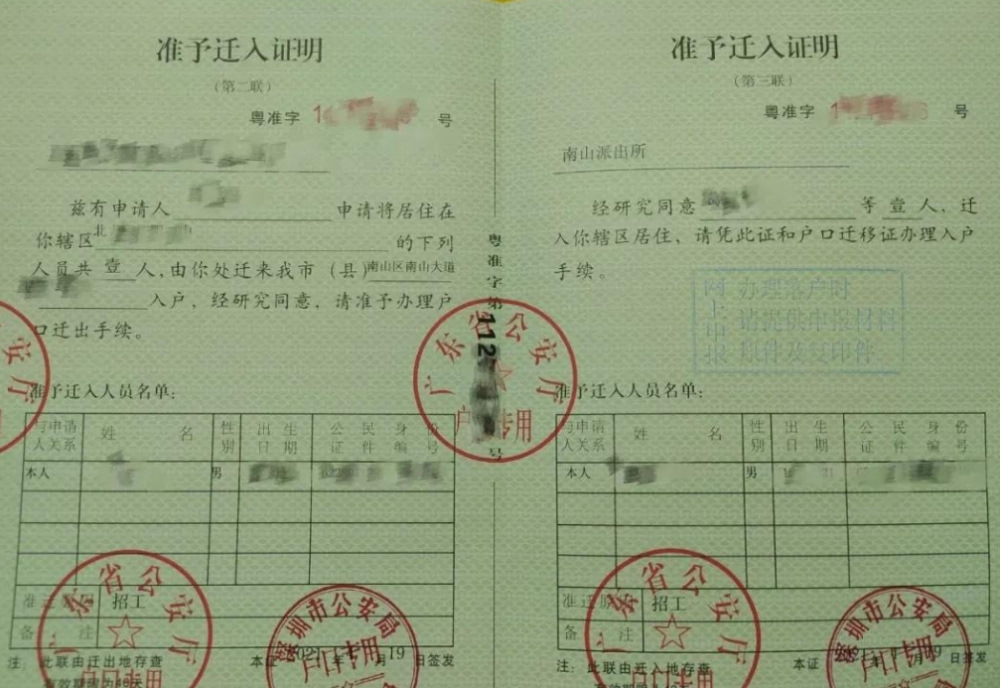 准予迁入证明
（第二联）
粤准字 1 号
兹有申请人 申请将居住在
你辖区北 的下列
人员共 壹 人，由你处迁来我市（县）南山区南山大道
入户，经研究同意，请准予办理户
口迁出手续。
准予迁入人员名单：
与申请人关系 姓名 性别 出生日期 公民身份证件编号
本人 男
准迁原因 招工
备注
注：此联由迁出地存查
本证 月19日签发
粤准字第1127 号
广东省公安厅
户口专用
广东省公安厅
户口专用
深圳市公安局
户口专用
准予迁入证明
（第三联）
粤准字 1 号
南山派出所
经研究同意 等 壹 人，迁
入你辖区居住，请凭此证和户口迁移证办理入户
手续。
网上申报
办理落户时
请提供申报材料
原件及复印件
准予迁入人员名单：
与申请人关系 姓名 性别 出生日期 公民身份证件编号
本人 男
准迁原 招工
备注
注：此联由迁入地存查
本证 日签发
广东省公安厅
户口专用
深圳市公安局
户口专用